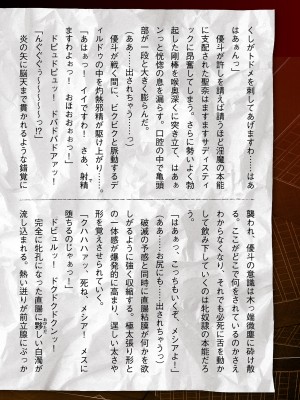 くしがトドメを刺してあげますわ……はあ
はぁんっ」
優斗が許しを請えば請うほど淫魔の本能
に支配された聖奈はますますサディスティ
ックに昂奮してしまう。さらに勢いよく勃
起した剛棒を喉奥深くに突き立て、はぁぁ
ンっと恍惚の息を漏らす。口腔の中で亀頭
部が一段と大きく膨らんだ。
(ああ……出されちゃうっ)
優斗が戦く間に、ビクビクと脈動するデ
ィルドゥの中を灼熱淫精が駆け上がり……。
「あはぁっ! イイですわ! さあ、射精
ますわよぉっ! おほおぉぉっ!」
ドビュドビュッ! ドバドバドアァッ!
「んぐぐぅぅ〜〜〜〜〜っ!?」
炎の矢に脳天まで貫かれるような錯覚に
襲われ、優斗の意識は木っ端微塵に砕け散
る。ここがどこで何をされているのかさえ
わからなくなり、それでも必死に舌を動か
して飲み下していくのは牝奴隷の本能だろ
う。
「はあぁっ、こっちもいくぞ、メシアよ!」
(ああ……お尻にも……出されちゃうっ)
破滅の予感と同時に直腸粘膜が何かを欲
しがるように強く収縮する。極太張り形と
の一体感が爆発的に高まり、逞しい太さや
形を覚えさせられていく。
「クハハハァッ、死ね、メシア! メスに
堕ちるのじゃぁっ!」
ドビュルッ! ドクドクドクンッ!
完全に牝孔になった直腸に夥しい白濁が
流し込まれる。熱い迸りが前立腺にぶっか